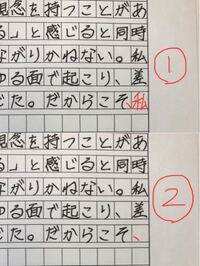 観念を持つことがあ
る」と感じると同時
ながりかねない。私
ゆる面で起こり、差
だ。だからこそ、私
①
観念を持つことがあ
る」と感じると同時
ながりかねない。私
ゆる面で起こり、差
だ。だからこそ、
②